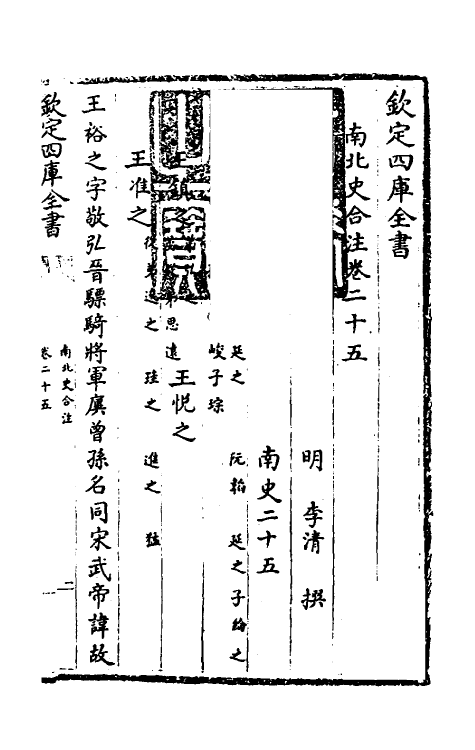 欽定四庫全書
南北史合注卷二十五
明 李清 撰
南史二十五
延之 阮韜 延之子綸之
峻子琮
王悅之
弟思遠
王准之 從弟逡之 珪之 進之 猛
王裕之字敬弘晉驃騎將軍廙曾孫名同宋武帝諱故
欽定四庫全書
南北史合注
卷二十五
一